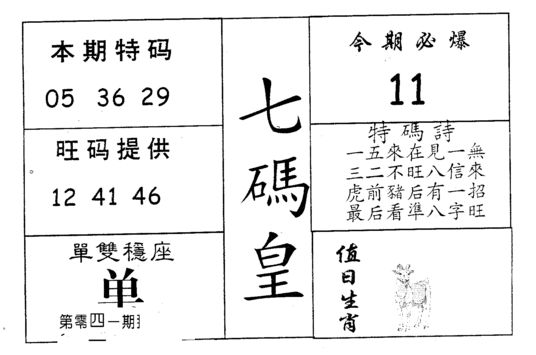 本期特码
05 36 29
旺码提供
12 41 46
單雙穩座
单
第零四一期
七碼皇
今期必爆
11
特碼詩
一五來在見一無
三二不旺八信來
虎前豬后有一招
最后看準八字旺
值日生肖